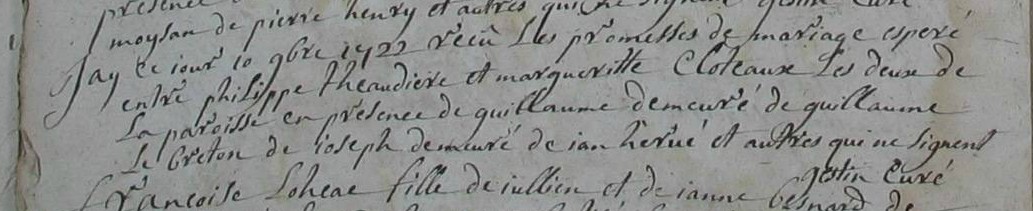 presence
moysan de pierre henry et autres qui ne signent gestin Curé
Jay ce jour 10 9bre 1722 reçu Les promesses de mariage esperé
entre philippe theaudiere et margueritte Cloteaux Les deux de
La paroisse en presence de guillaume demeuré de guillaume
Le breton de ioseph demeuré de ian hervé et autres qui ne signent
gestin Curé
Françoise Loheac fille de iullien et de ianne besnard de